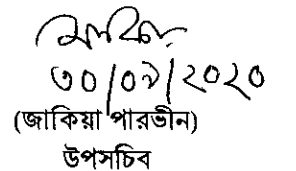 ৩০/০৯/২০২০
(জাকিয়া পারভীন)
উপসচিব